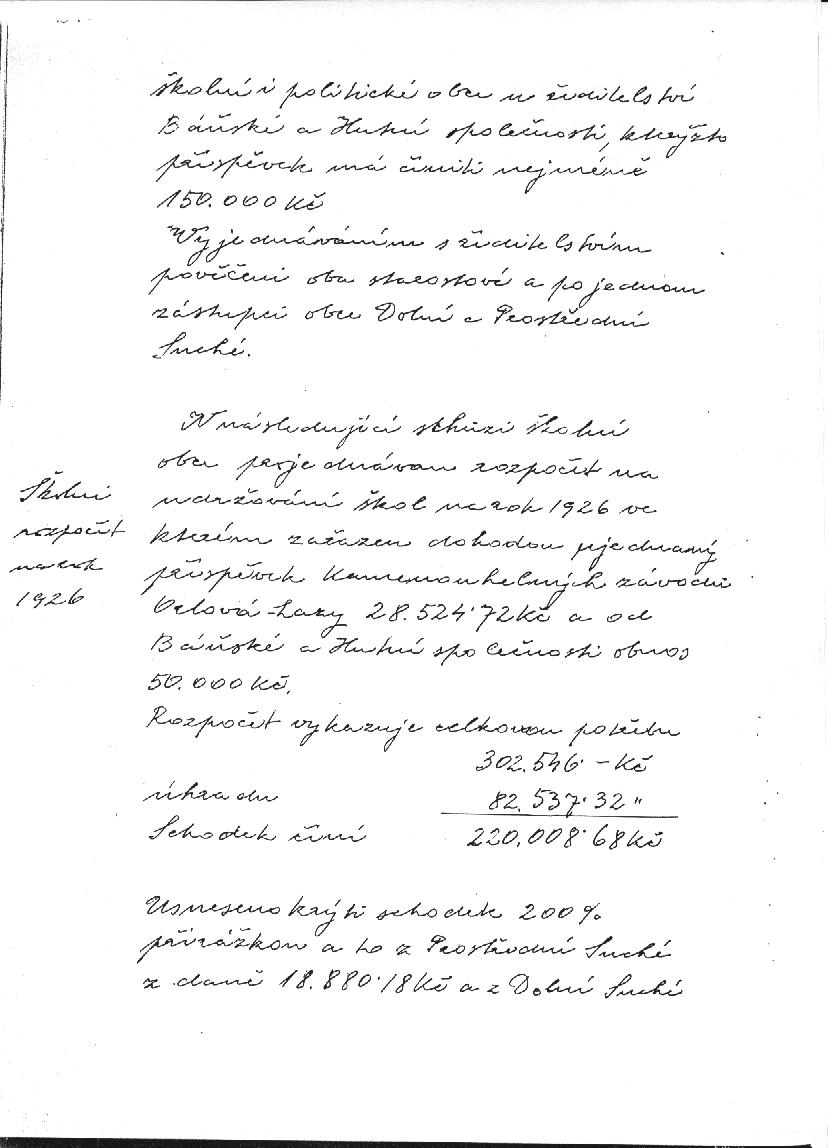 školní i politické obce u ředitelství
Báňské a Hutní společnosti, kterýžto
příspěvek má činiti nejméně
150.000 Kč
Vyjednáváním s ředitelstvím
pověřeni oba starostové a po jednom
zástupci obce Dolní a Prostřední
Suché.
V následující schůzi školní
obce projednáván rozpočet na
udržování škol na rok 1926 ve
kterém zařazen dohodou ujednaný
příspěvek Kamenouhelných závodů
Orlová-Lazy 28.524·72 Kč a od
Báňské a Hutní společnosti obnos
50.000 Kč.
Školní
rozpočet
na rok
1926
Rozpočet vykazuje celkovou potřebu
302.546·- Kč
úhradu 82.537·32 "
Schodek činí 220.008·68 Kč
Usneseno krýti schodek 200%
přirážkou a to z Prostřední Suché
z daně 18.880·18 Kč a z Dolní Suché